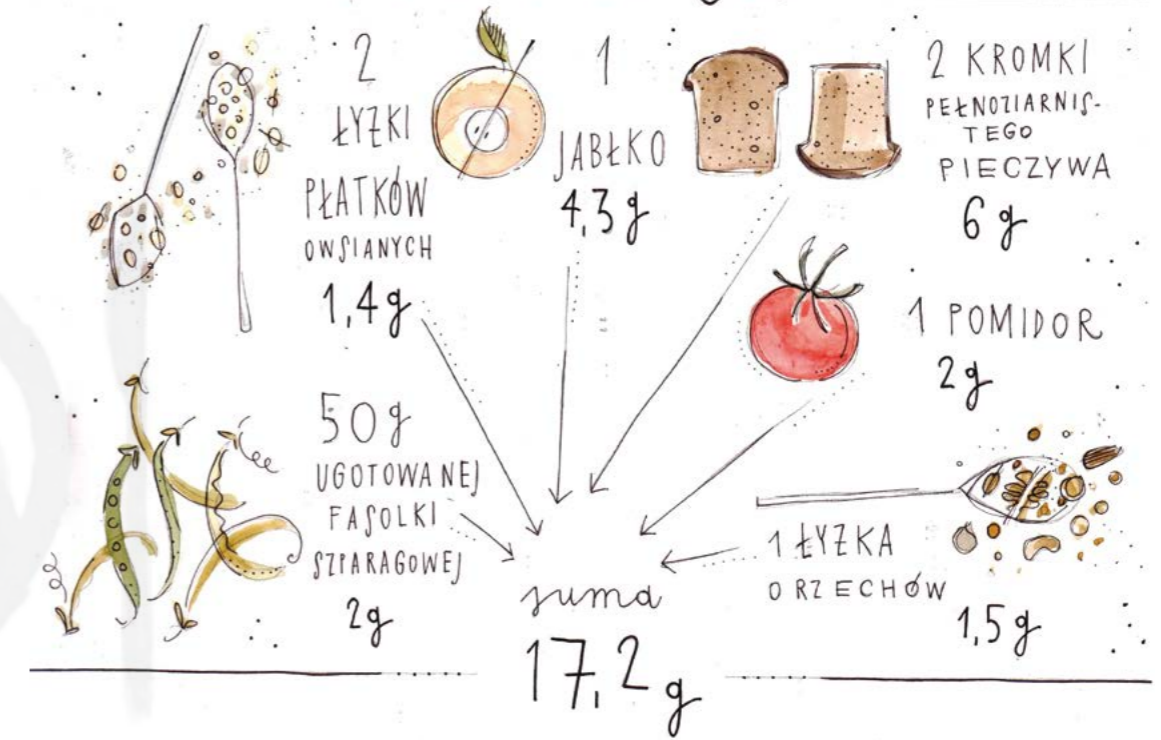 2
ŁYŻKI
PŁATKÓW
OWSIANYCH
1,4g
1
JABŁKO
4,3g
2 KROMKI
PEŁNOZIARNIS-
TEGO
PIECZYWA
6g
1 POMIDOR
2g
50g
UGOTOWANEJ
FASOLKI
SZPARAGOWEJ
2g
1 ŁYŻKA
ORZECHÓW
1,5g
suma
17,2g